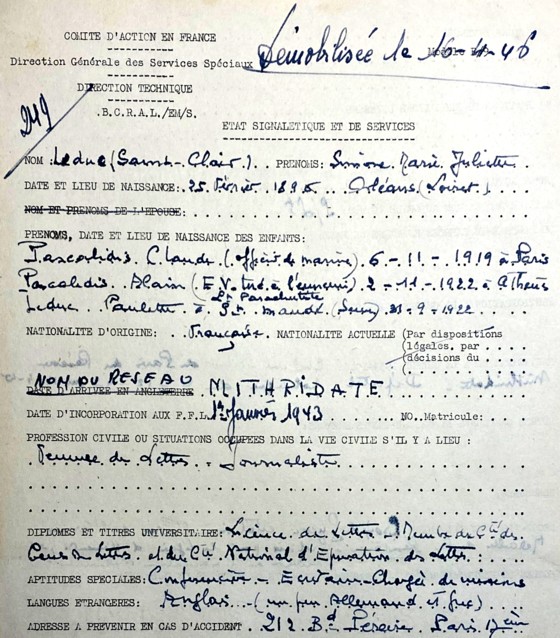 COMITE D'ACTION EN FRANCE
Démobilisée le 16-4-46
Direction Générale des Services Spéciaux
DIRECTION TECHNIQUE
.B.C.R.A.L./EM/S.
ETAT SIGNALETIQUE ET DE SERVICES
NOM : Leduc (Saint-Clair.) PRENOMS: Simone Marie Juliette
DATE ET LIEU DE NAISSANCE: 25 Février 1895 Orléans (Loiret.)
NOM ET PRENOMS DE L'EPOUSE:
PRENOMS, DATE ET LIEU DE NAISSANCE DES ENFANTS:
Claude (officier de marine) 6-11-1919 à Paris
Alain (E.V. tué à l'ennemi) 2-11-1922 à Athènes
Lt Parachutiste
Leduc Paulette à St. Mandé (Seine) -9-1922
NATIONALITE D'ORIGINE: Française. NATIONALITE ACTUELLE (Par dispositions
légales, par
décisions du
NOM DU RESEAU MITHRIDATE
DATE D'ARRIVEE EN ANGLETERRE
DATE D'INCORPORATION AUX F.F.L. 1er Janvier 1943 NO. Matricule:
PROFESSION CIVILE OU SITUATIONS OCCUPEES DANS LA VIE CIVILE S'IL Y A LIEU :
Femme de Lettres - Journaliste
DIPLOMES ET TITRES UNIVERSITAIRE: Licence de Lettres - Membre du Cté des
Gens de Lettres et du Cté National d'Epuration des Lettres
APTITUDES SPECIALES: Conférencière - Ecrivain - Chargée de missions
LANGUES ETRANGERES: Anglais - (un peu Allemand et Grec)
ADRESSE A PREVENIR EN CAS D'ACCIDENT . 212 Bd Péreire Paris 17ème